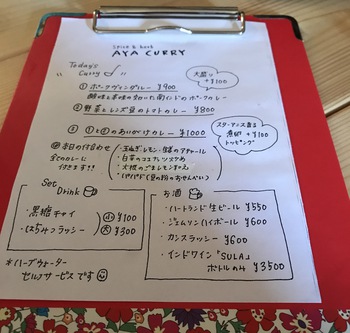 Spice & herb
AYA CURRY
Today's
Curry
大盛り
+¥100
① ポークヴィンダルー ¥900
酸味と辛味の効いた南インドのポークカレー
② 野菜とレンズ豆のトマトカレー ¥800
③ ①と②のあいがけカレー ¥1000
スターアニス香る
煮卵 +¥100
トッピング
本日の付合わせ
全てのカレーに
付きます!!
・玉ねぎ・レモン・生姜のアチャール
・白菜のココナッツスゲめ
・大根のごまレモンすえ
・パパド(豆の粉のおせんべい)
Set
Drink
・黒糖チャイ
・はちみつラッシー
小 ¥100
大 ¥300
お酒
・ハートランド生ビール ¥550
・ジェムソンハイボール ¥600
・ガンスラッシー ¥600
・インドワイン「SULA」
ボトルのみ ¥3500
*ハーブウォーター
セルフサービスです